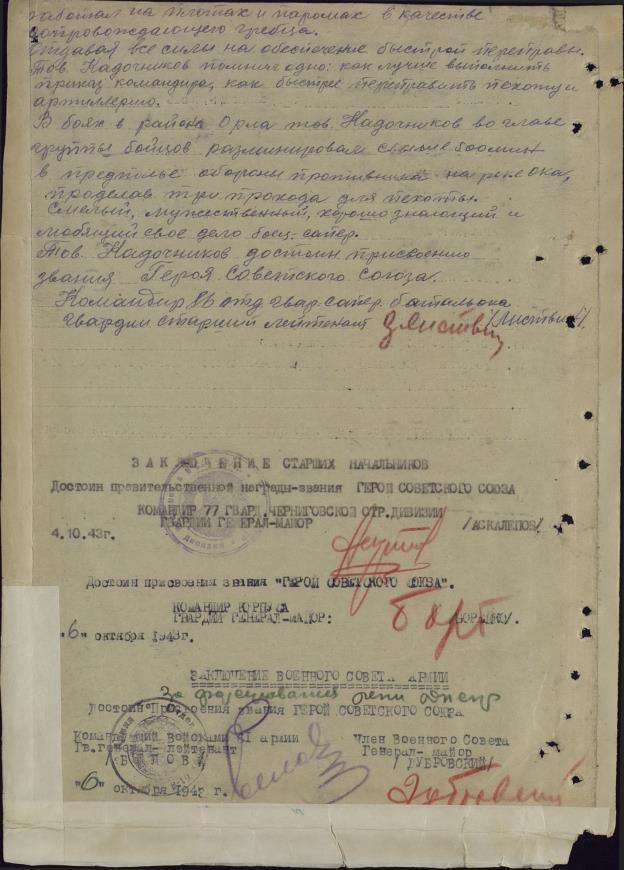 работал на плотах и паромах в качестве
сопровождающего гребца.
Отдавая все силы на обеспечение быстрой переправы.
Тов. Надочников помнил одно: как лучше выполнить
приказ командира, как быстрее переправить пехоту и
артиллерию.
В боях в районе Орла тов. Надочников во главе
группы бойцов разминировал свыше мин
в предполье обороны противника на реке Ока,
проделав три прохода для пехоты.
Смелый, мужественный, хорошо знающий и
любящий свое дело боец-сапер.
Тов. Надочников достоин присвоению
звания Героя Советского Союза.
Командир 86 отд гвар. сапер. батальона
гвардии старший лейтенант /Листвин/
ЗАКЛЮЧЕНИЕ СТАРШИХ НАЧАЛЬНИКОВ
Достоин правительственной награды-звания ГЕРОЙ СОВЕТСКОГО СОЮЗА
КОМАНДИР 77 ГВАРД.ЧЕРНИГОВСКОЙ СТР.ДИВИЗИИ
ГВАРДИИ ГЕНЕРАЛ-МАЙОР /АСКАЛЕПОВ/
4.10.43г.
Достоин присвоения звания "ГЕРОЙ СОВЕТСКОГО СОЮЗА".
КОМАНДИР КОРПУСА
ГВАРДИИ ГЕНЕРАЛ-МАЙОР:
"6" октября 1943г.
ЗАКЛЮЧЕНИЕ ВОЕННОГО СОВЕТА АРМИИ
За форсирование реки Днепр
Достоин Присвоения звания ГЕРОЙ СОВЕТСКОГО СОЮЗА
Командующий войсками 61 армии Член Военного Совета
Гв.генерал-лейтенант Генерал-майор
/БЕЛОВ/ /ДУБРОВСКИЙ/
"6" октября 194 г.